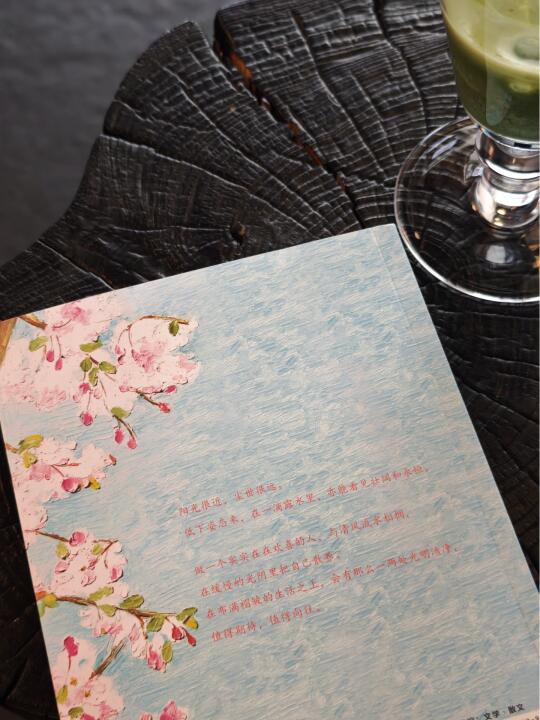 阳光很近，尘世很远。
低下姿态来，在一滴露水里，亦能看见壮阔和永恒。
做一个实实在在欢喜的人，与清风流云相拥。
在缓慢的光阴里把自己散养。
在布满褶皱的生活之上，会有那么一两处光明洁净，
值得期待，值得向往。
文学·散文